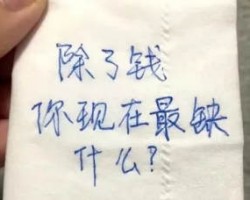 除了钱
你现在最缺
什么?